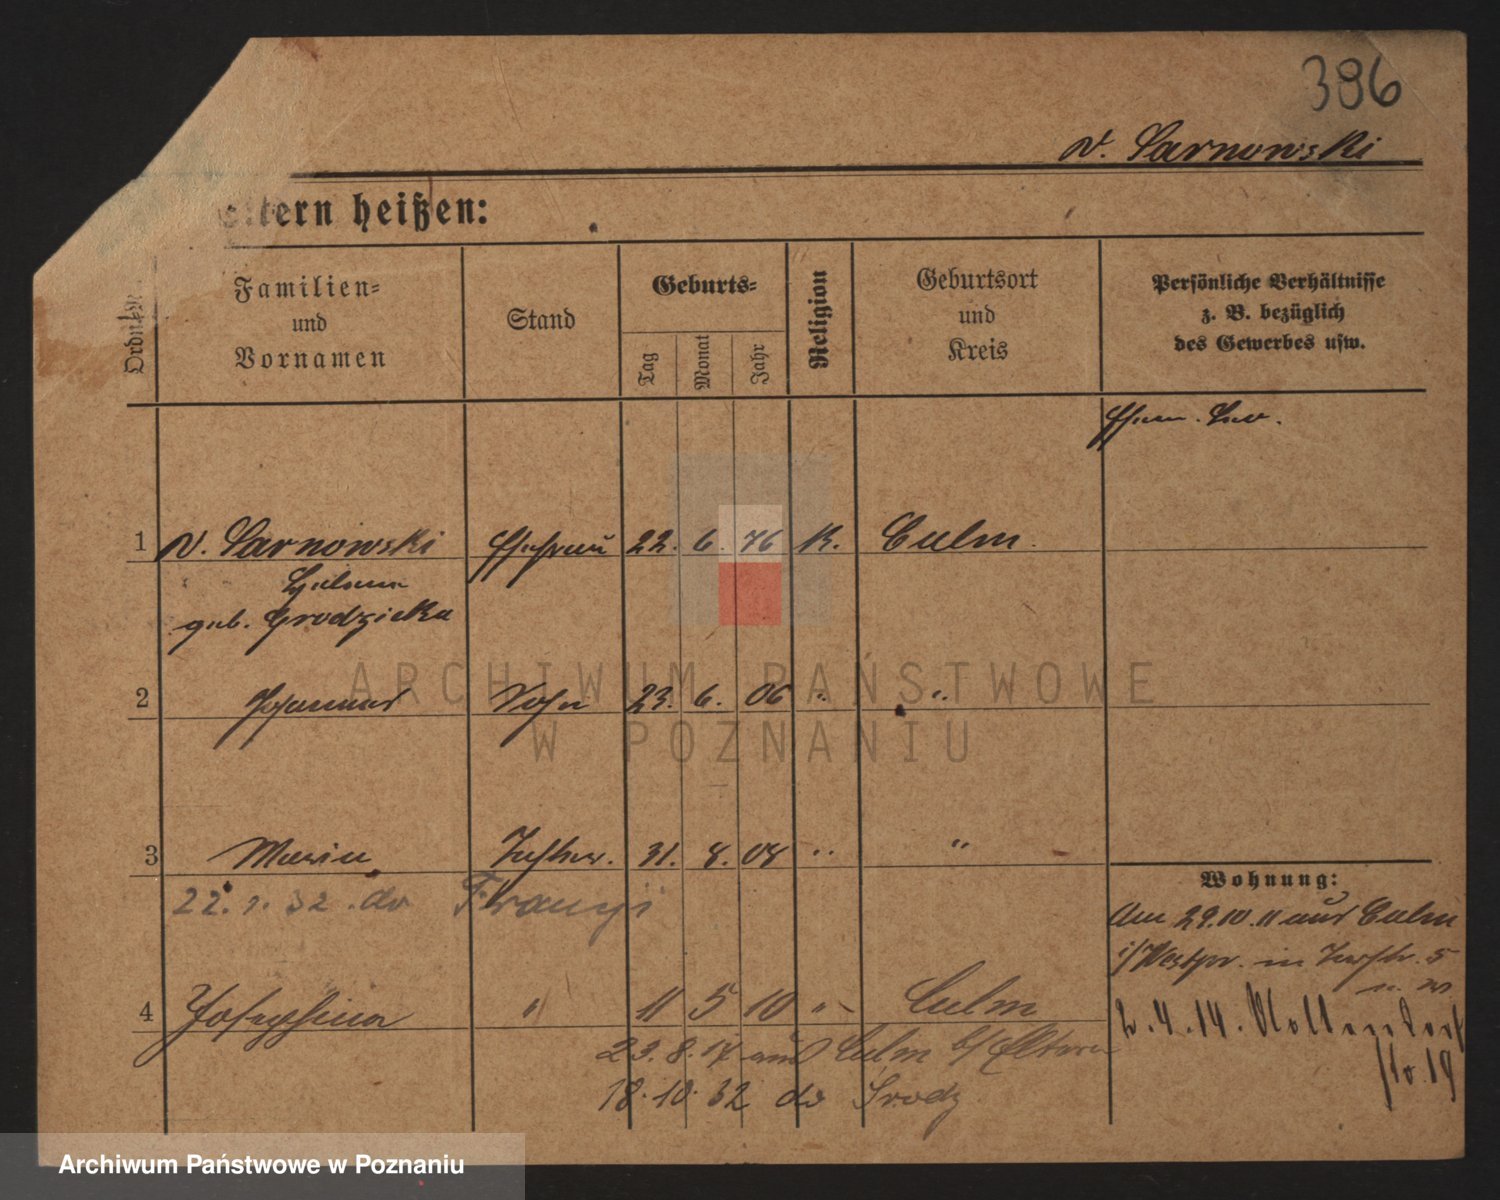 386
v. Sarnowski
eltern heißen:
Ordn. Nr.
Familien-
und
Vornamen
Stand
Geburts-
Tag
Monat
Jahr
Religion
Geburtsort
und
Kreis
Persönliche Verhältnisse
z. B. bezüglich
des Gewerbes usw.
1 v. Sarnowski Ehefrau 22. 6. 76 K. Culm.
Helena
geb. Grodzicka
2 Johannes Sohn 23. 6. 06 " "
3 Maria Tochter. 31. 8. 08 " "
22. 1. 32. do Francyi
4 Josephina " 11 5 10 " Culm
23. 8. 17 aus Culm b/ Eltern
18. 10. 32 do Środy
Wohnung:
Am 29.10.11 aus Culm
i/Westpr. in 5
2. 4. 14. Nollendorf
str. 19
ARCHIWUM PAŃSTWOWE
W POZNANIU
Archiwum Państwowe w Poznaniu